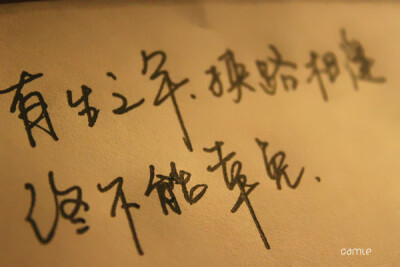 有生之年.狭路相逢
终不能幸免.
camie